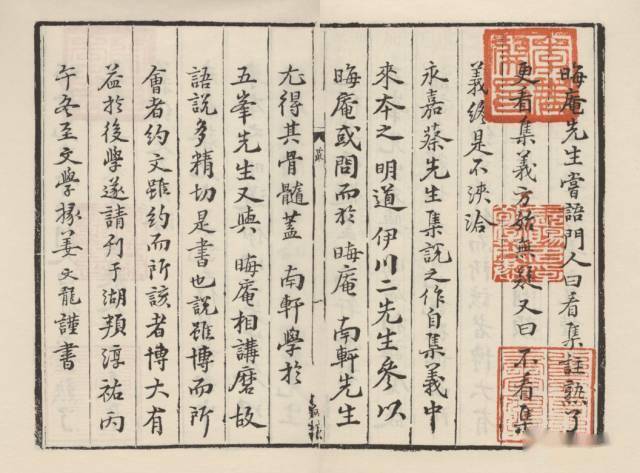 晦庵先生嘗語門人曰看集註熟了
更看集義方始無疑又曰不看集
義終是不浹洽
永嘉蔡先生集說之作自集義中
來本之 明道 伊川二先生參以
晦庵或問而於 晦庵 南軒先生
尤得其骨髓蓋 南軒學於
五峯先生又與 晦庵相講磨故
語說多精切是書也說雖博而所
會者約文雖約而所該者博大有
益於後學遂請刊于湖頖淳祐丙
午冬至文學掾姜文龍謹書